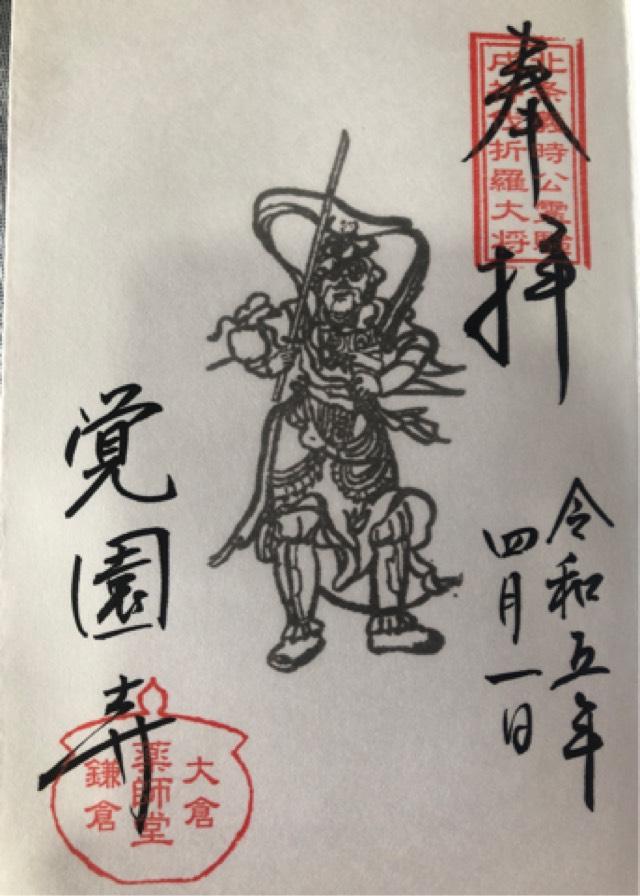 奉拝
北条義時公霊験
戌神伐折羅大将
令和五年
四月一日
覚園寺
大倉
薬師堂
鎌倉